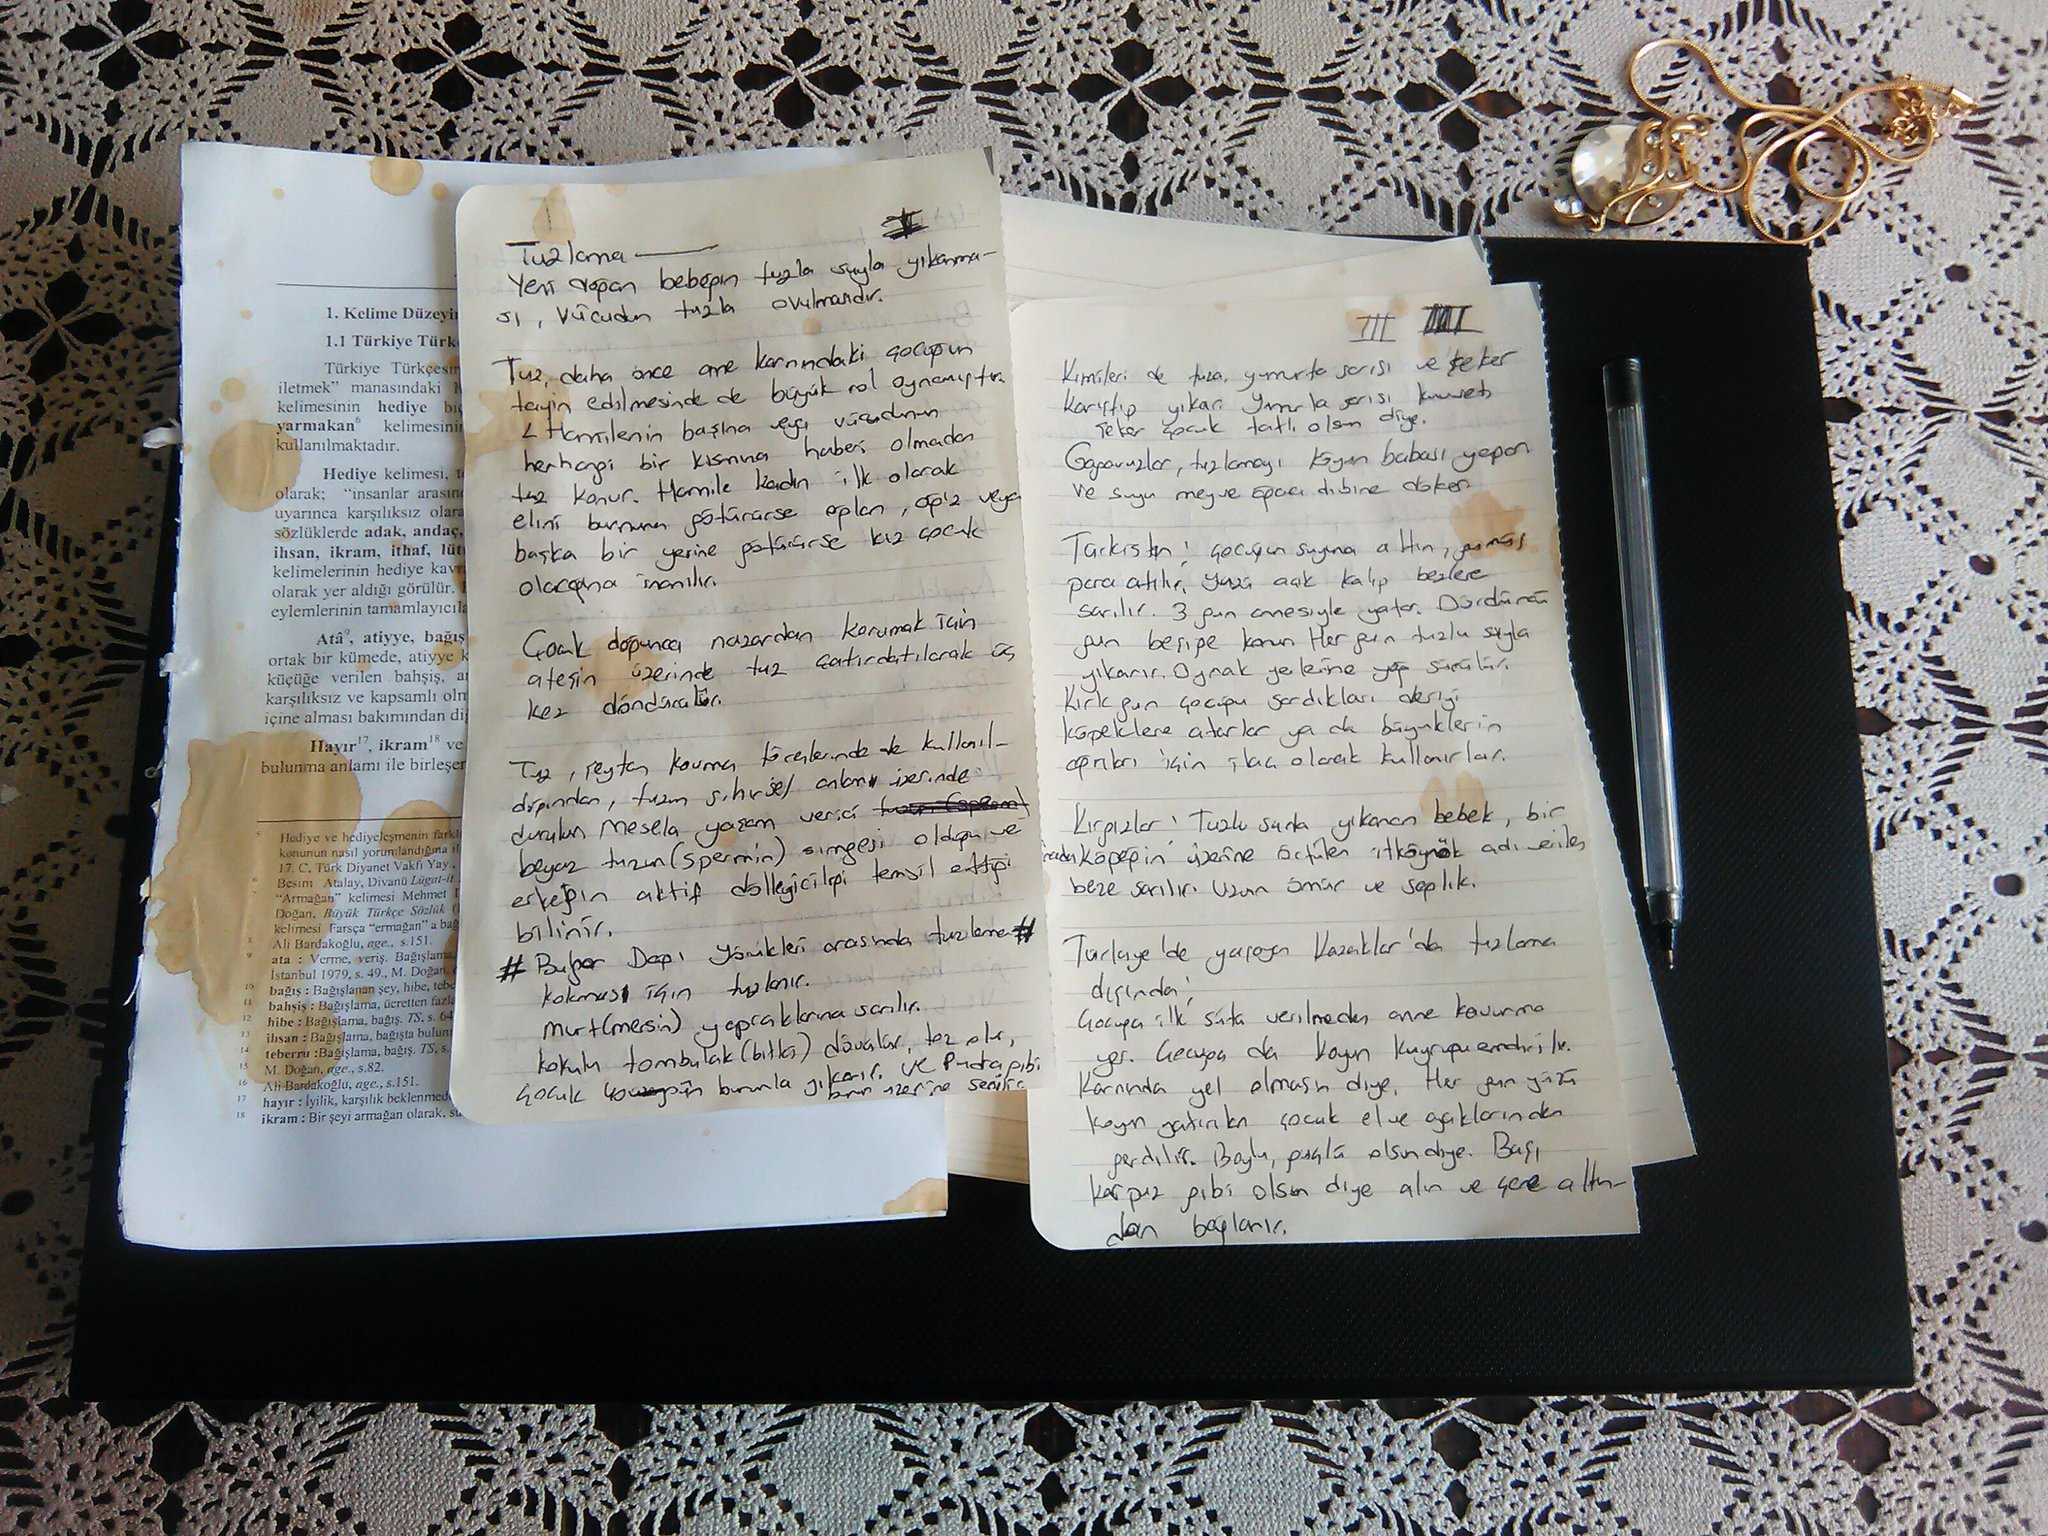 1. Kelime Düzeyin
1.1 Türkiye Türk
Türkiye Türkçesin
iletmek" manasındaki
kelimesinin hediye
yarmakan⁶ kelimesinin
kullanılmaktadır.
Hediye kelimesi,
olarak; "insanlar arasın
uyarınca karşılıksız olara
sözlüklerde adak, andaç,
ihsan, ikram, ithaf, lüt
kelimelerinin hediye kav
olarak yer aldığı görülür.
eylemlerinin tamamlayıcıla
Atâ⁹, atiyye, bağış
ortak bir kümede, atiyye k
küçüğe verilen bahşiş,
karşılıksız ve kapsamlı olm
içine alması bakımından di
Hayır¹⁷, ikram¹⁸ ve
bulunma anlamı ile birleşe
5 Hediye ve hediyeleşmenin farklı
konunun nasıl yorumlandığına
17. C. Türk Diyanet Vakfı Yay.,
6 Besim Atalay, Divanü Lügat-it
7 "Armağan" kelimesi Mehmet
Doğan, Büyük Türkçe Sözlük
kelimesi Farsça "ermağan" a
8 Ali Bardakoğlu, age., s.151.
9 ata : Verme, veriş. Bağışlama,
İstanbul 1979, s. 49., M. Doğan,
10 bağış : Bağışlanan şey, hibe,
11 bahşiş : Bağışlama, ücretten fazla
12 hibe : Bağışlama, bağış. TS, s. 64
13 ihsan : Bağışlama, bağışta bulun
14 teberru :Bağışlama, bağış. TS, s.
15 M. Doğan, age., s.82.
16 Ali Bardakoğlu, age., s.151.
17 hayır : İyilik, karşılık beklenmed
18 ikram : Bir şeyi armağan olarak,
I
Tuzlama
Yeni doğan bebeğin tuzla suyla yıkanma-
sı, vücudun tuzla ovulmasıdır.
Tuz, daha önce anne karnındaki çocuğun
tayin edilmesinde de büyük rol oynamıştır.
Hamilenin başına veya vücudunun
herhangi bir kısmına haberi olmadan
tuz konur. Hamile kadın ilk olarak
elini burnuna götürürse oğlan, ağız veya
başka bir yerine götürürse kız çocuk
olacağına inanılır.
Çocuk doğunca nazardan korumak için
ateşin üzerinde tuz çatırdatılarak üç
kez döndürülür.
Tuz, şeytan kovma törenlerinde de kullanıl-
dığından, tuzun sihirsel anlamı üzerinde
durulun Mesela yaşam verici
beyaz tuzun (spermin) simgesi olduğu ve
erkeğin aktif dölleyiciliği temsil ettiği
bilinir.
# Bulgar Dağı Yörükleri arasında tuzlama #
kokması için tuzlanır.
Murt (mersin) yapraklarına sarılır.
kokulu tombulak (bitki) dövülür, toz olur,
çocuk bununla yıkanır. ve Pudra gibi
bunun üzerine serilir
III
Kimileri de tuza, yumurta sarısı ve şeker
karıştırıp yıkar. Yumurta sarısı kuvvetli
şeker çocuk tatlı olsun diye.
Gagavuzlar, tuzlamayı köyün babası yapar
ve suyu meyve ağacı dibine döker
Türkistan: çocuğun suyuna altın, gümüş
para atılır. Yüzü açık kalıp bezlere
sarılır. 3 gün annesiyle yatar. Dördüncü
gün beşiğe konur. Her gün tuzlu suyla
yıkanır. Oynak yerlerine yağ sürülür.
Kırk gün çocuğu sardıkları deriyi
köpeklere atarlar ya da büyüklerin
ağrıları için ilaç olarak kullanırlar.
Kırgızlar: Tuzlu suda yıkanan bebek, bir
köpeğin üzerine örtülen itköynök adı verilen
beze sarılır. Uzun ömür ve sağlık.
Türkiye'de yaşayan Kazaklar'da tuzlama
dışında;
Çocuğa ilk sütü verilmeden anne kavurma
yer. Çocuğa da koyun kuyruğu emdirilir.
Karnında yel olmasın diye. Her gün yüzü
koyun yatırılan çocuk el ve ayaklarından
gerdilir. Boylu, güçlü olsun diye. Başı
karpuz gibi olsun diye alın ve çene altın-
dan bağlanır.